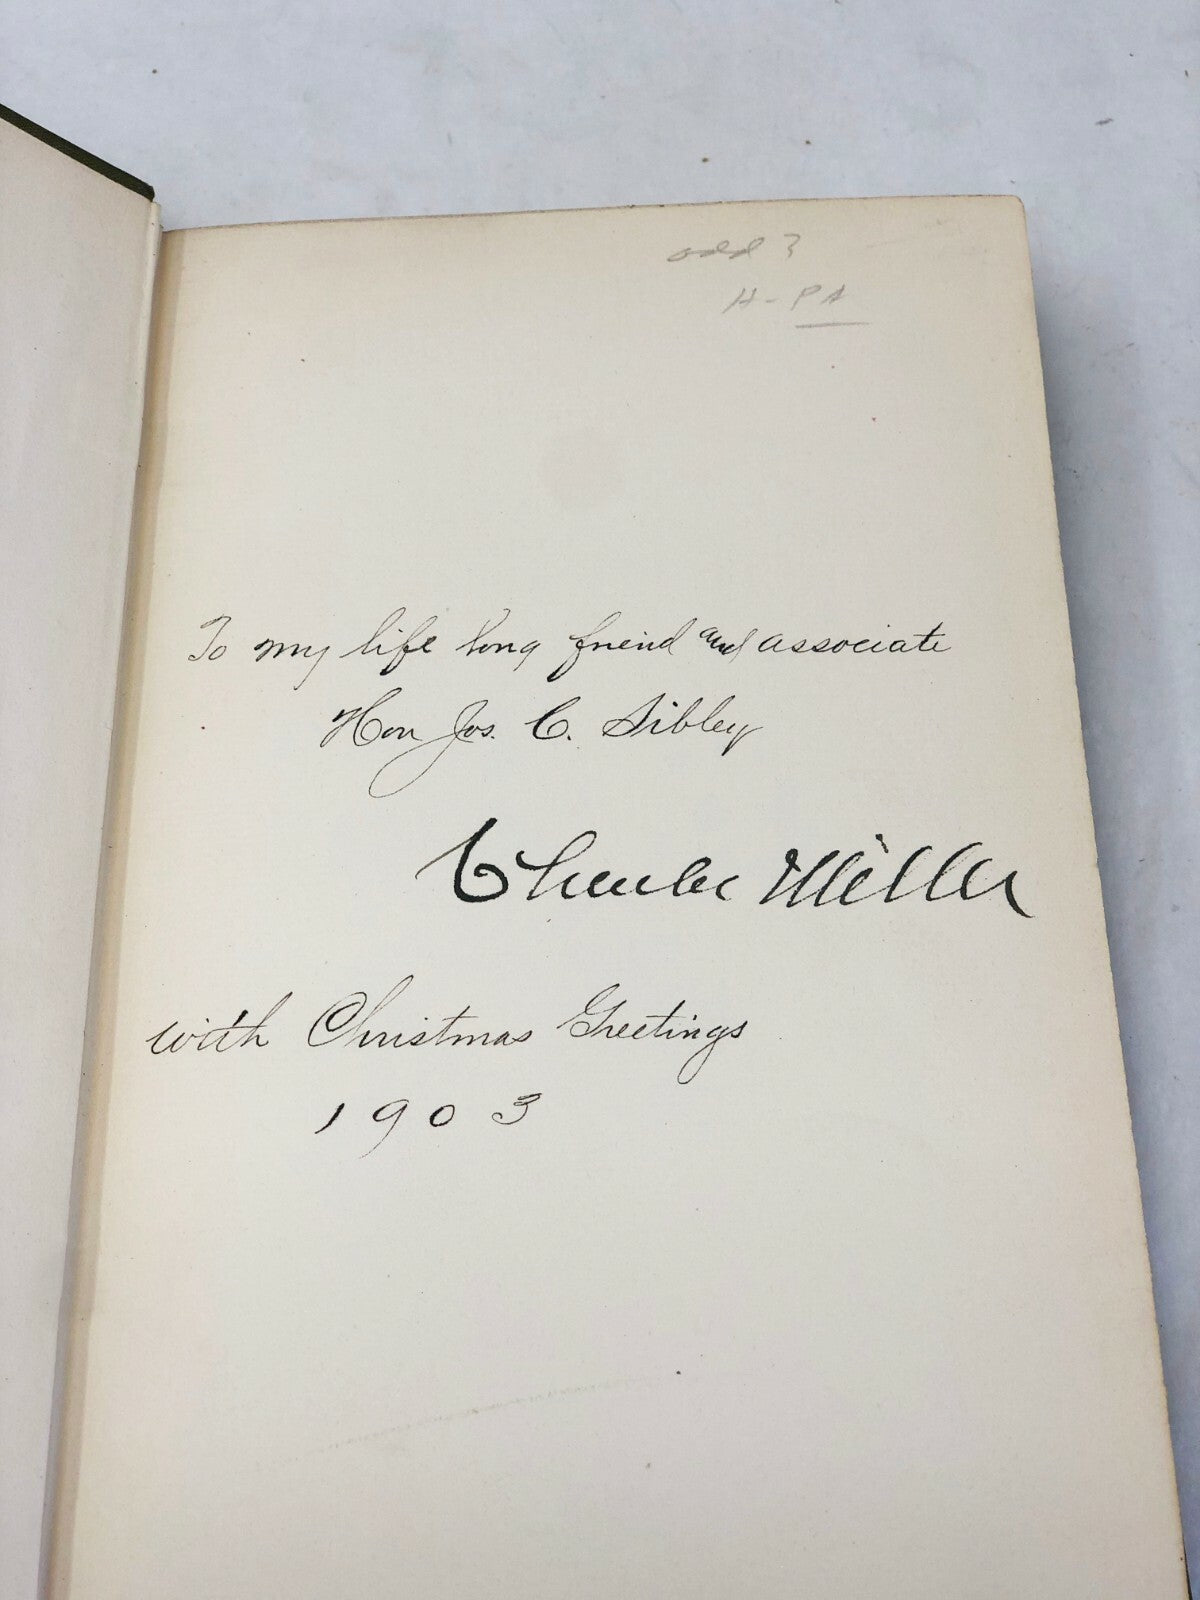 odd ?
H - PA
To my life long friend and associate
Hon Jos. C. Sibley
Charles Miller
with Christmas Greetings
1903